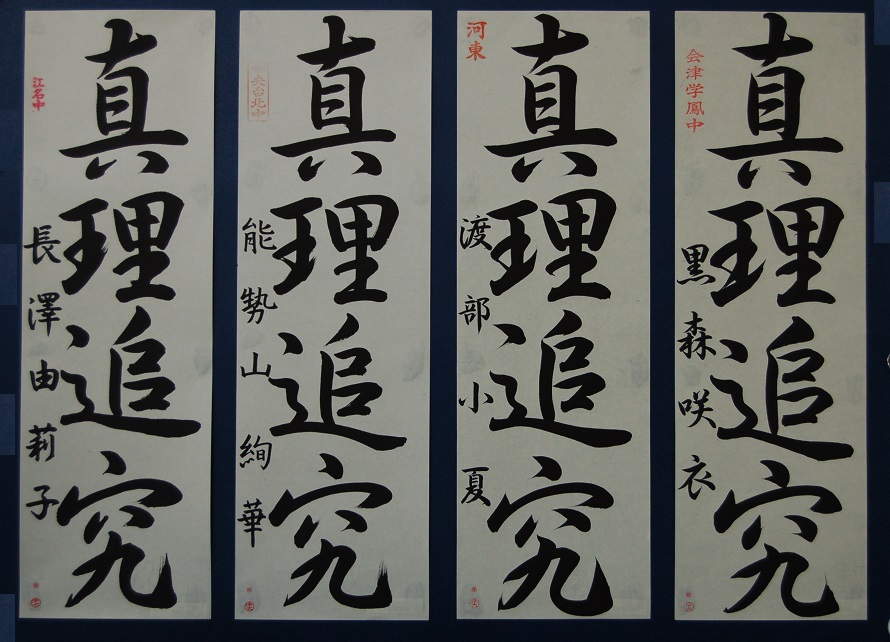 真理追究
会津学鳳中
黒森咲衣
真理追究
河東
渡部小夏
真理追究
央台北中
能勢山絢華
真理追究
江名中
長澤由莉子